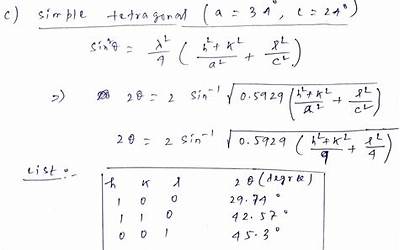 c) simple tetragonal (a = 3 A°, c = 2 A°)
sin²θ = λ²/4 (h²+k²/a² + l²/c²)
⇒) 2θ = 2 sin⁻¹ √0.5929 (h²+k²/a² + l²/c²)
2θ = 2 sin⁻¹ √0.5929 (h²+k²/9 + l²/4)
List:-
h k l 2θ (degree)
1 0 0 29.74°
1 1 0 42.57°
0 0 1 45.3°